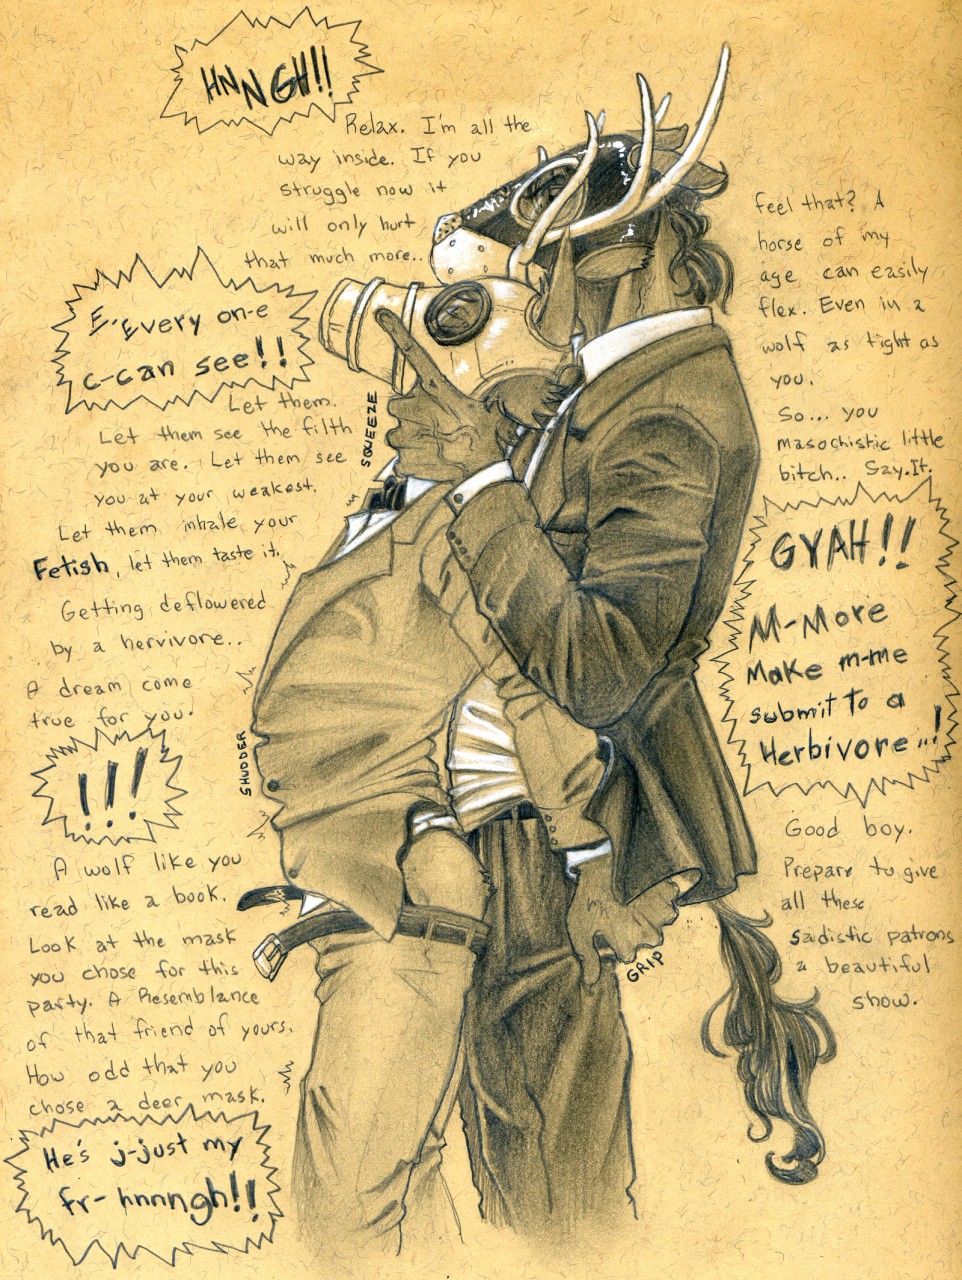 HNNGH!!
Relax. I'm all the
way inside. If you
struggle now it
will only hurt
that much more..
E-Every on-e
c-can see!!
Let them.
Let them see the filth
you are. Let them see
you at your weakest.
Let them inhale your
Fetish, let them taste it.
Getting deflowered
by a hervivore..
A dream come
true for you.
!!!
A wolf like you
read like a book.
Look at the mask
you chose for this
party. A Resemblance
of that friend of yours.
How odd that you
chose a deer mask.
He's j-just my
fr- hnnngh!!
SQUEEZE
SHUDDER
GRIP
Feel that? A
horse of my
age can easily
flex. Even in a
wolf as tight as
you.
So... you
masochistic little
bitch.. Say.It.
GYAH!!
M-More
Make m-me
submit to a
Herbivore...!
Good boy.
Prepare to give
all these
sadistic patrons
a beautiful
show.